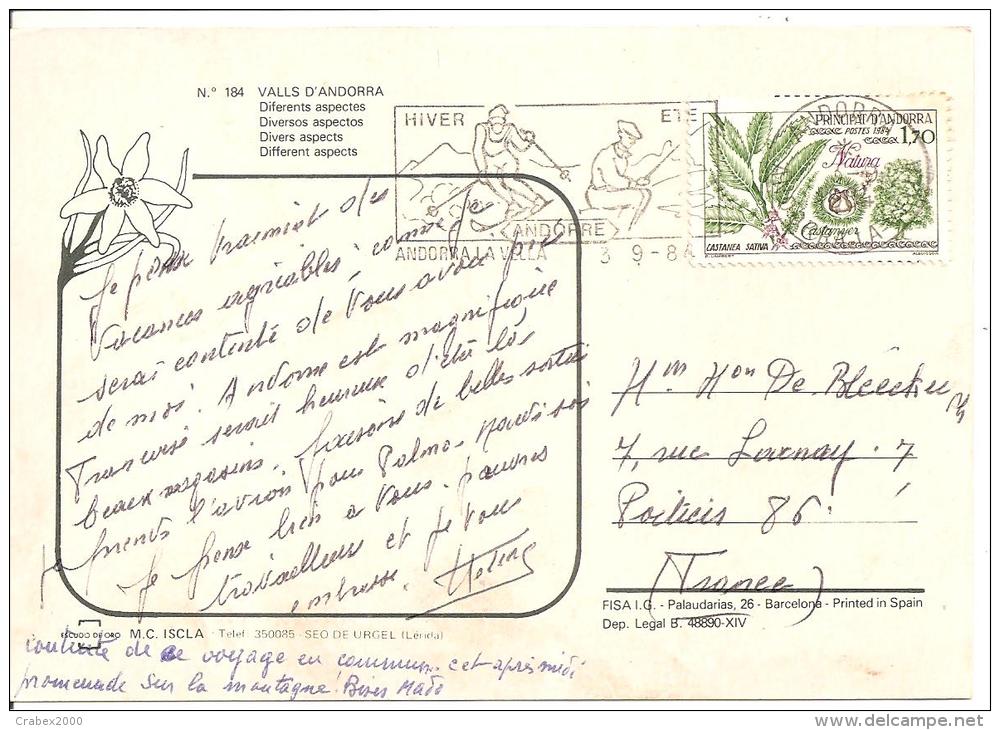 N.º 184 VALLS D'ANDORRA
Diferents aspectes
Diversos aspectos
Divers aspects
Different aspects
HIVER ETE
ANDORRE
ANDORRA LA VELLA 3 9-84
PRINCIPAT D'ANDORRA
POSTES 1984 1,70
Natura
Castanyer
CASTANEA SATIVA
Je pense vraiment des
vacances agréables, comme je
serais contente de vous avoir près
de moi. Andorre est magnifique
serait heureuse d'être là,
beaux magasins. faisons de belles sorties
Je prends l'avion pour Palma. Mardi soi
Je pense bien à vous. pauvres
travailleurs et je vous
embrasse.
De
7, rue 7
Poitiers 86
(France)
FISA I.G. - Palaudarias, 26 - Barcelona - Printed in Spain
Dep. Legal B. 48890-XIV
ESCUDO DE ORO M.C. ISCLA - Telef. 350085 - SEO DE URGEL (Lérida)
contente de ce voyage en commun. cet après midi
promenade sur la montagne! Bises Mado
Crabex2000 www.delcampe.net